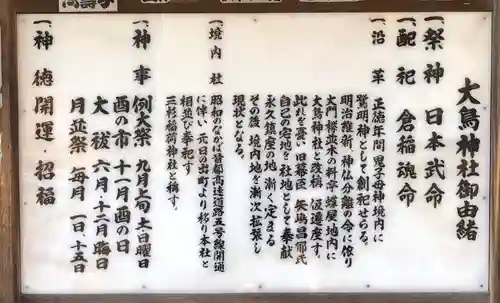 大鳥神社御由緒
一、祭神 日本武命
一、配祀 倉稲魂命
一、沿革 正徳年間 鬼子母神境内に
鷺明神として創祀せらる。
明治維新、神仏分離の令に依り
大門欅並木の料亭蝦屋地内に
大鳥神社と改稱 仮遷座す。
此れを憂い旧幕臣 矢嶋昌郁氏
自己の宅地を社地として奉献
永久鎮座の地漸く定まる
その後、境内地を漸次拡張し
現状となる。
一、境内社
昭和のなかば首都高速道路五号線開通
に伴い 元日の出町より移り本社と
相並び奉祀す
三杉稲荷神社と稱す。
一、神事 例大祭 九月上旬 土日曜日
酉の市 十一月酉の日
大祓 六月・十二月晦日
月並祭 毎月 一日・十五日
一、神徳 開運・招福